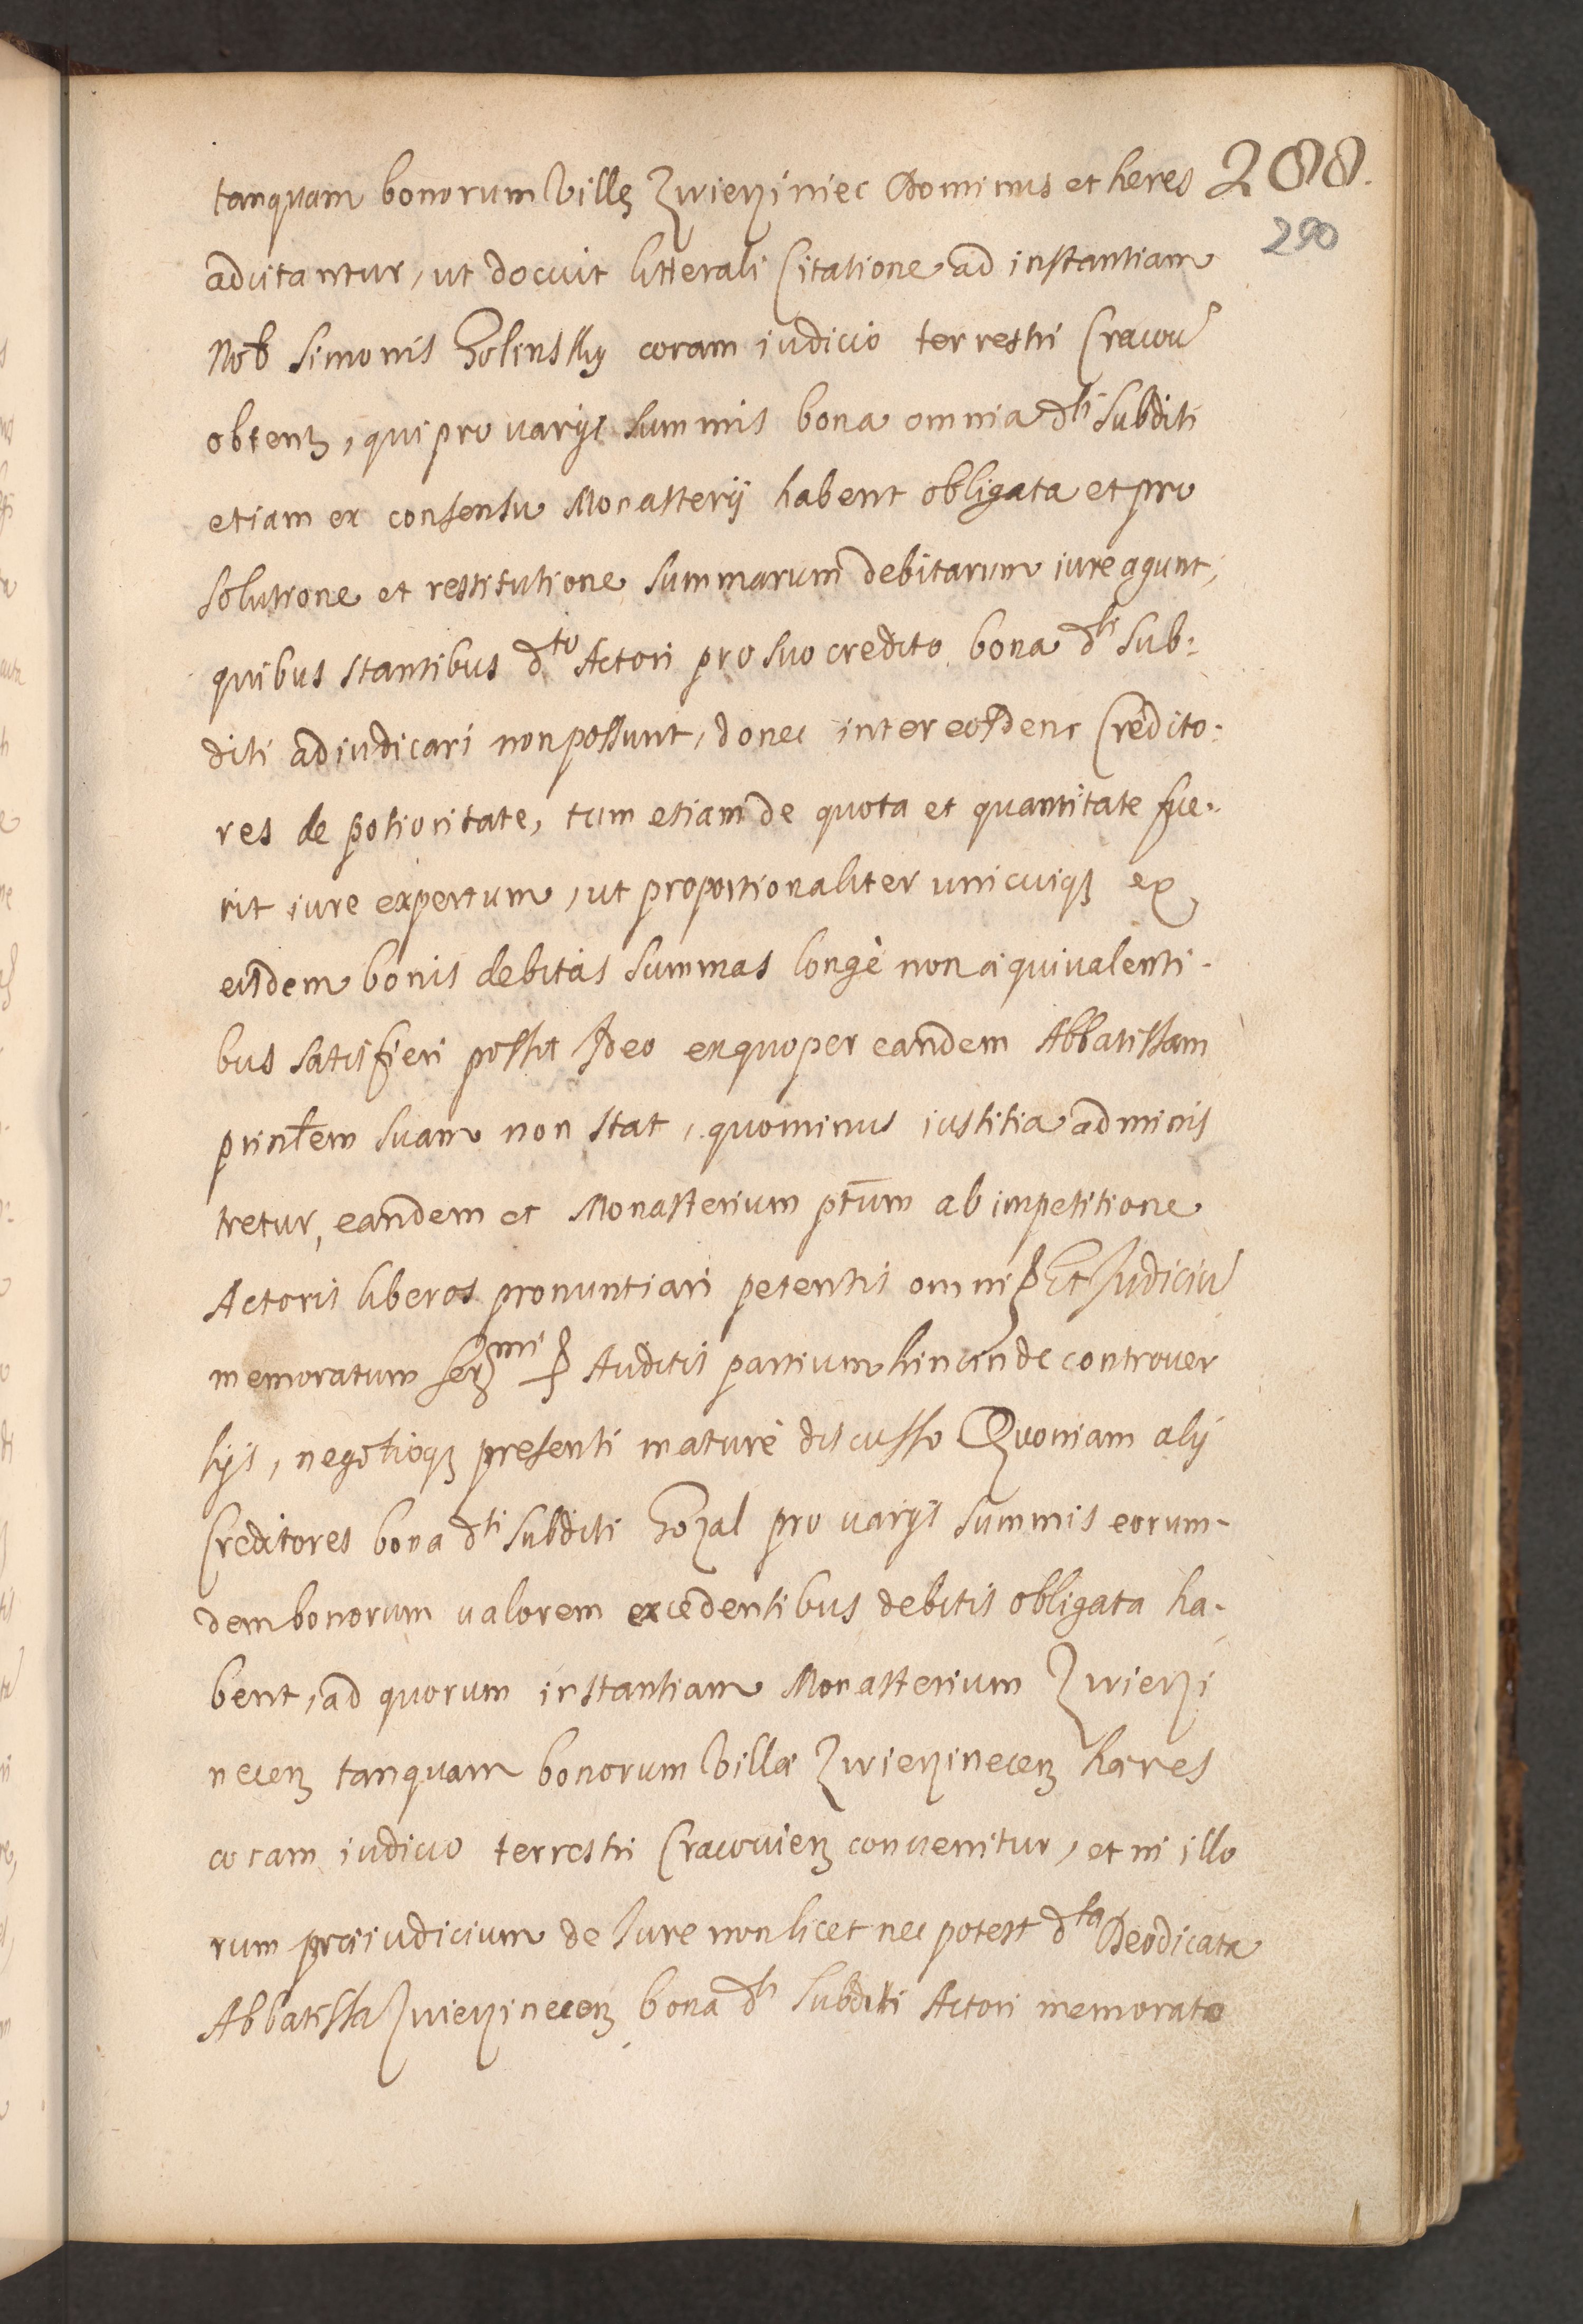 tanquam bonorum Villę Zwierziniec Dominus et heres 288.
290
adcitantur, ut docuit litterali Citatione ad instantiam
Nob Simonis Golensky coram iudicio terrestri Cracov
obtenz, qui pro varys summis bona omnia dti subditi
etiam ex consensu Monasterij habent obligata et pro
solutione et restitutione summarum debitarum iure agunt,
quibus stantibus dto Actori pro suo credito bona dti sub:
diti adiudicari non possunt, donec inter eosdem Credito:
res de potioritate, tum etiam de quota et quantitate fue:
rit iure expertum, ut proportionaliter unicuiqꝫ ex
eisdem bonis debitas summas longè non æquivalenti:
bus satisfieri possit Ideo exquo per eandem Abbatissam
printem suam non stat, quominus iustitia adminis
tretur, eandem et Monasterium ptum ab impetitione
Actoris liberos pronuntiari petentis omni Et Judiciu
memoratum Auditis partium hincinde controver
sijs, negotioqꝫ presenti maturè discusso Quoniam alij
Creditores bona dti subditi Gozal pro varijs summis eorum-
dem bonorum valorem excedentibus debitis obligata ha-
bent, ad quorum instantiam Monasterium Zwierzi
necenz tanquam bonorum Villæ Zwierzinecenz hæres
coram iudicio terrestri Cracovienz convenitur, et in illo
rum præiudicium de Iure non licet nec potest dta Deodicata
Abbatissa Zwierzinecenz bona dti subditi Actori memorato